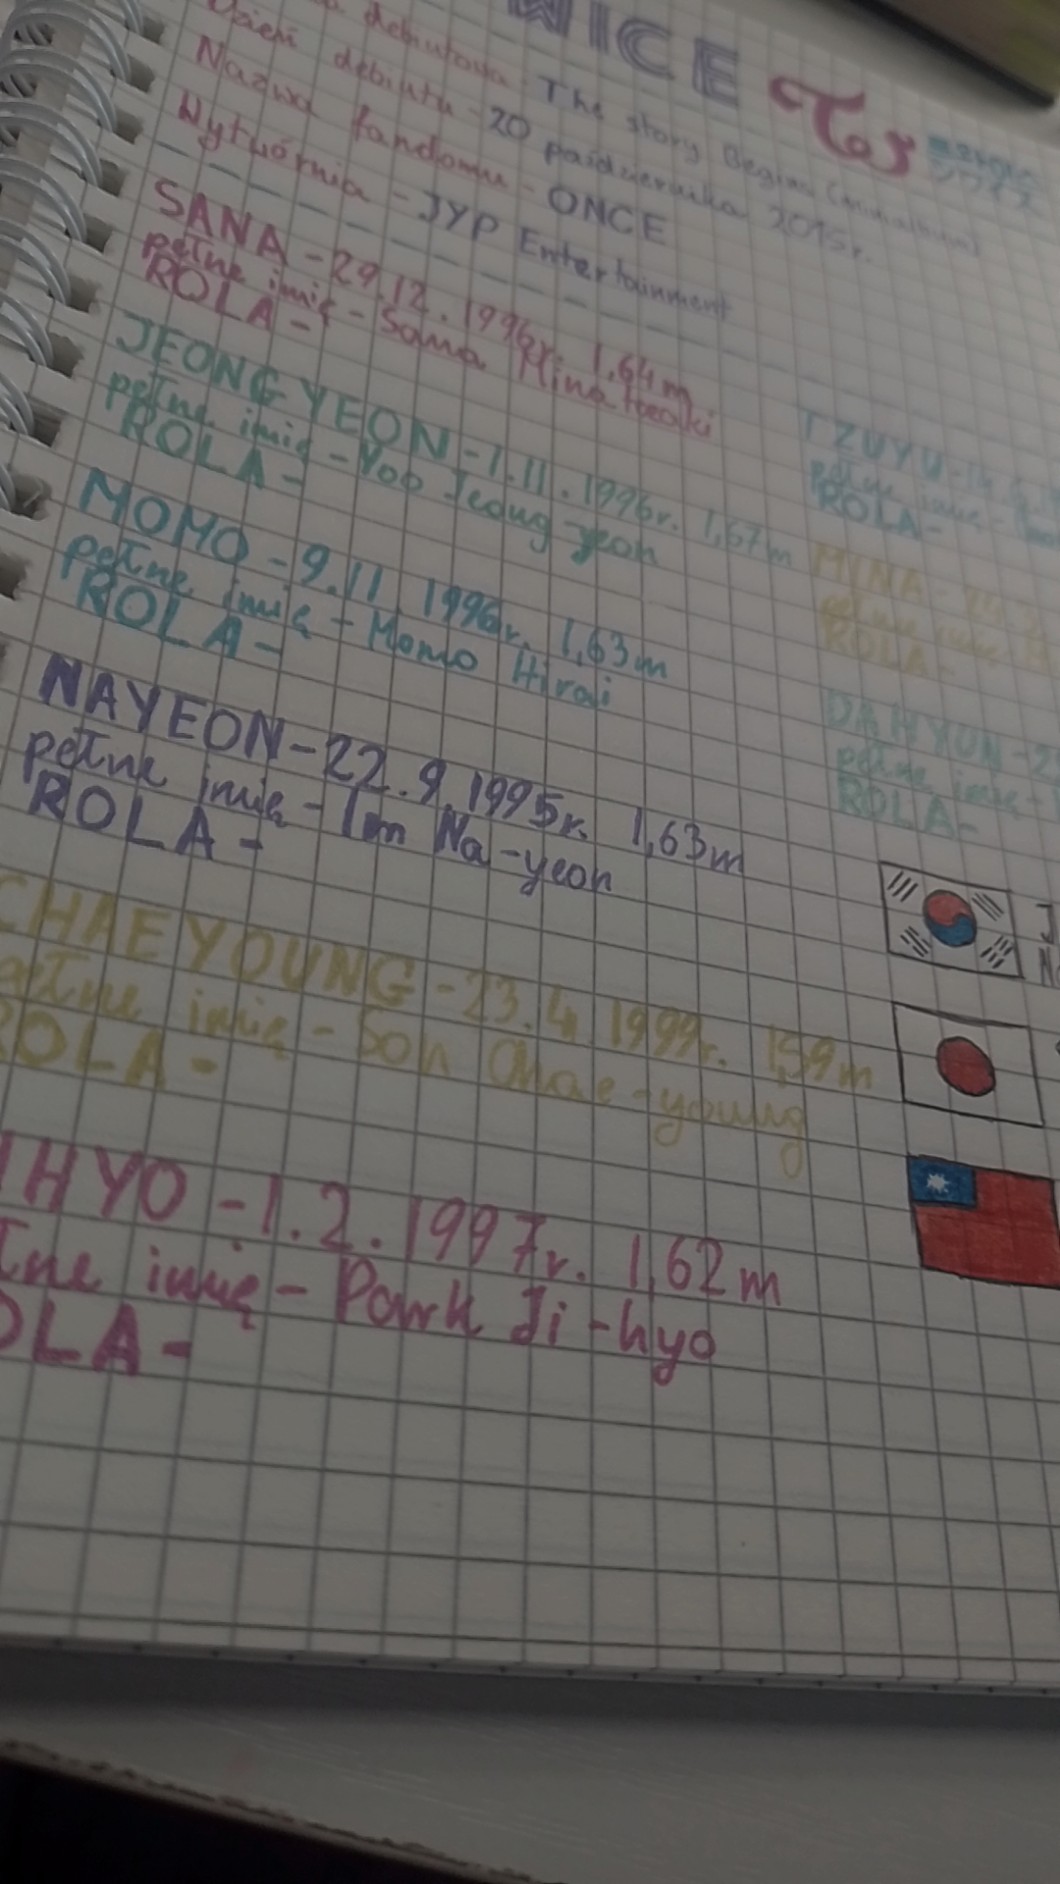 WICE
debiutowa - The story Begins (minialbum)
Dzień debiutu - 20 października 2015r.
Nazwa fandomu - ONCE
Wytwórnia - JYP Entertainment
SANA - 29.12.1996r. 1,64m
pełne imię - Sana Minatozaki
ROLA -
JEONGYEON - 1.11.1996r. 1,67m
pełne imię - Yoo Jeong-yeon
ROLA -
MOMO - 9.11.1996r. 1,63m
pełne imię - Momo Hirai
ROLA -
NAYEON - 22.9.1995r. 1,63m
pełne imię - Im Na-yeon
ROLA -
CHAEYOUNG - 23.4.1999r. 1,59m
pełne imię - Son Chae-young
ROLA -
IHYO - 1.2.1997r. 1,62m
łne imię - Park Ji-hyo
OLA -
TZUYU - 14.6.
pełne imię -
ROLA -
MINA -
pełne imię -
ROLA -
DAHYUN - 2
pełne imię -
ROLA -
J
N